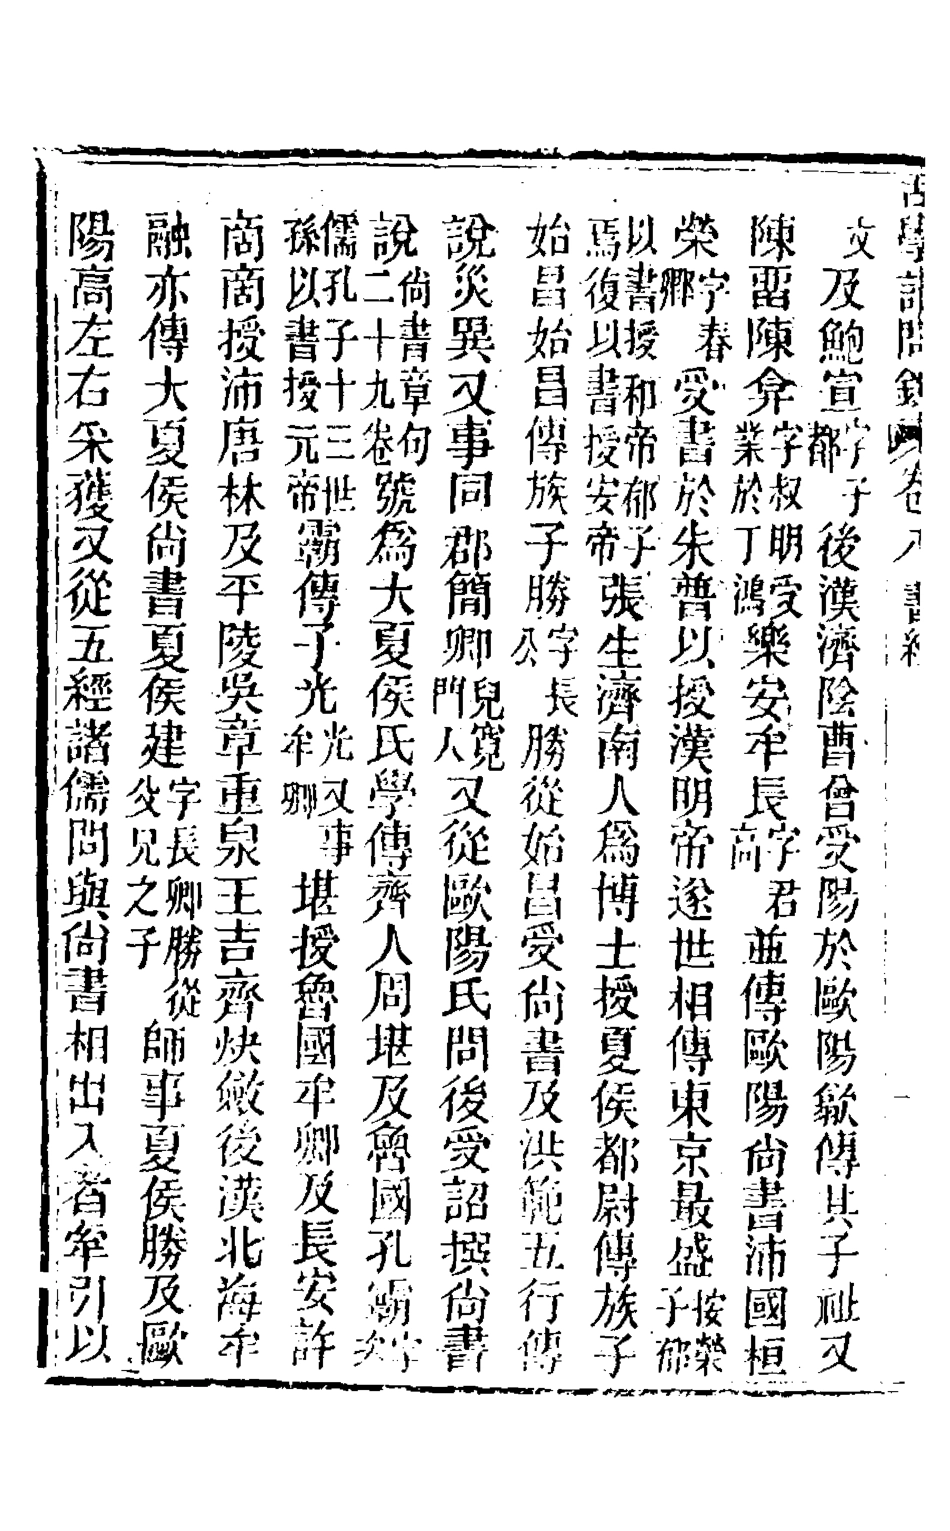 古學記問錄卷八 書經
文及鮑宣字子都後漢濟陰曹曾受陽於歐陽歙傳其子祉又
陳留陳弇字叔明受業於丁鴻樂安牟長字君高並傳歐陽尙書沛國桓
榮字春卿受書於朱普以授漢明帝遂世相傳東京最盛按榮子郁
以書授和帝郁子焉復以書授安帝張生濟南人爲博士授夏侯都尉傳族子
始昌始昌傳族子勝字長公勝從始昌受尙書及洪範五行傳
說災異又事同郡簡卿兒寬門人又從歐陽氏問後受詔撰尙書
說尙書章句二十九卷號爲大夏侯氏學傳齊人周堪及魯國孔霸字次
儒孔子十三世孫以書授元帝霸傳子光光又事牟卿堪授魯國牟卿及長安許
商商授沛唐林及平陵吳章重泉王吉齊炔欽後漢北海牟
融亦傳大夏侯尙書夏侯建字長卿勝從父兄之子師事夏侯勝及歐
陽高左右采獲又從五經諸儒問與尙書相出入者牽引以